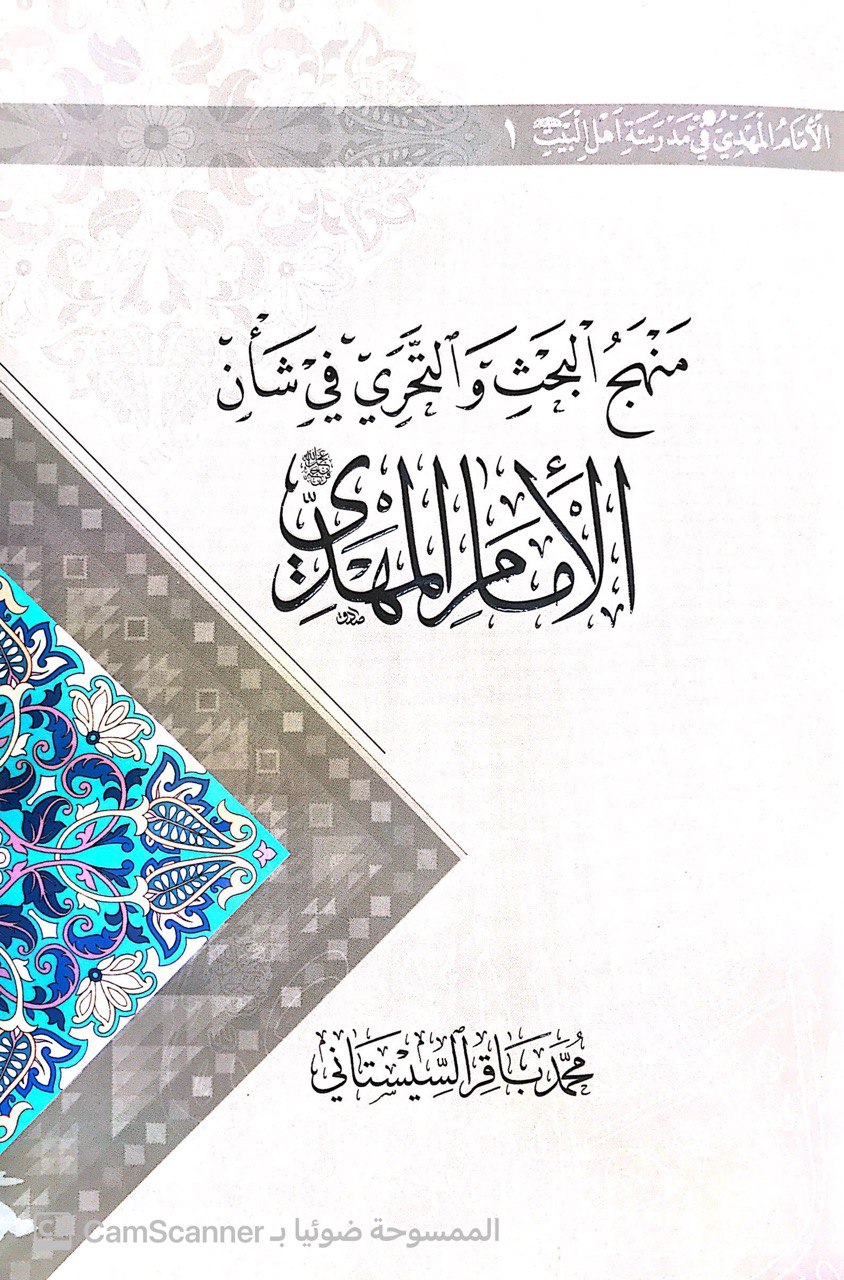 الإمَامُ المَهْدِيُّ فِي مَدْرَسَةِ أَهْلِ البَيْتِ ١
مَنْهَجُ الْبَحْثِ وَٱلتَّحَرِّي فِي شَأْنِ
الْإِمَامِ الْمَهْدِيِّ
صادق
مُحَمَّد بَاقِر ٱلسِّيسْتَانِي
الممسوحة ضوئيا بـ CamScanner